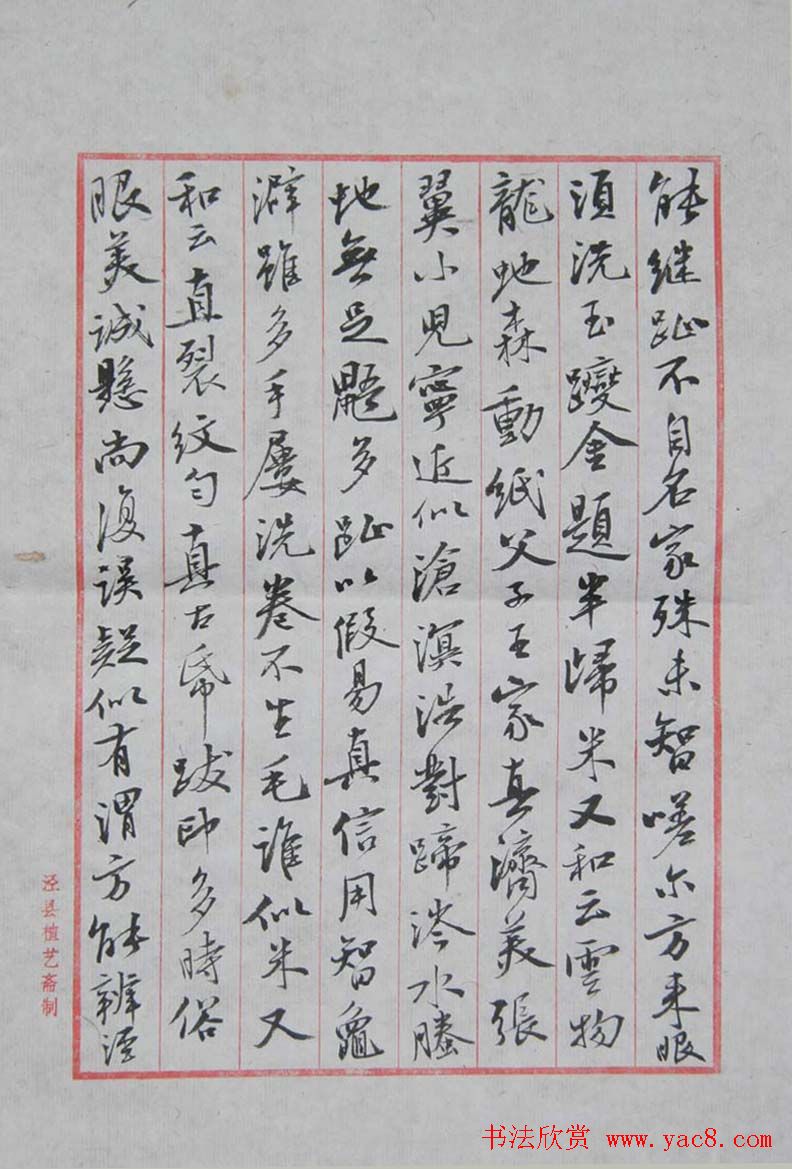 能继趾不自名家殊未智嗟尔方来眼
须洗玉躞金題半歸米又和云雲物
龍虵森動紙父子王家真濟美張
翼小兒寧近似滄溟浩對蹄涔水騰
虵無足鼯多趾以假易真信用智龜
澼雖多手屢洗卷不生毛誰似米又
和云直裂紋勻真古帋跋印多時俗
眼美誠懸尚復誤疑似有渭方能辨涇
泾县植艺斋制
书法欣赏 www.yac8.com